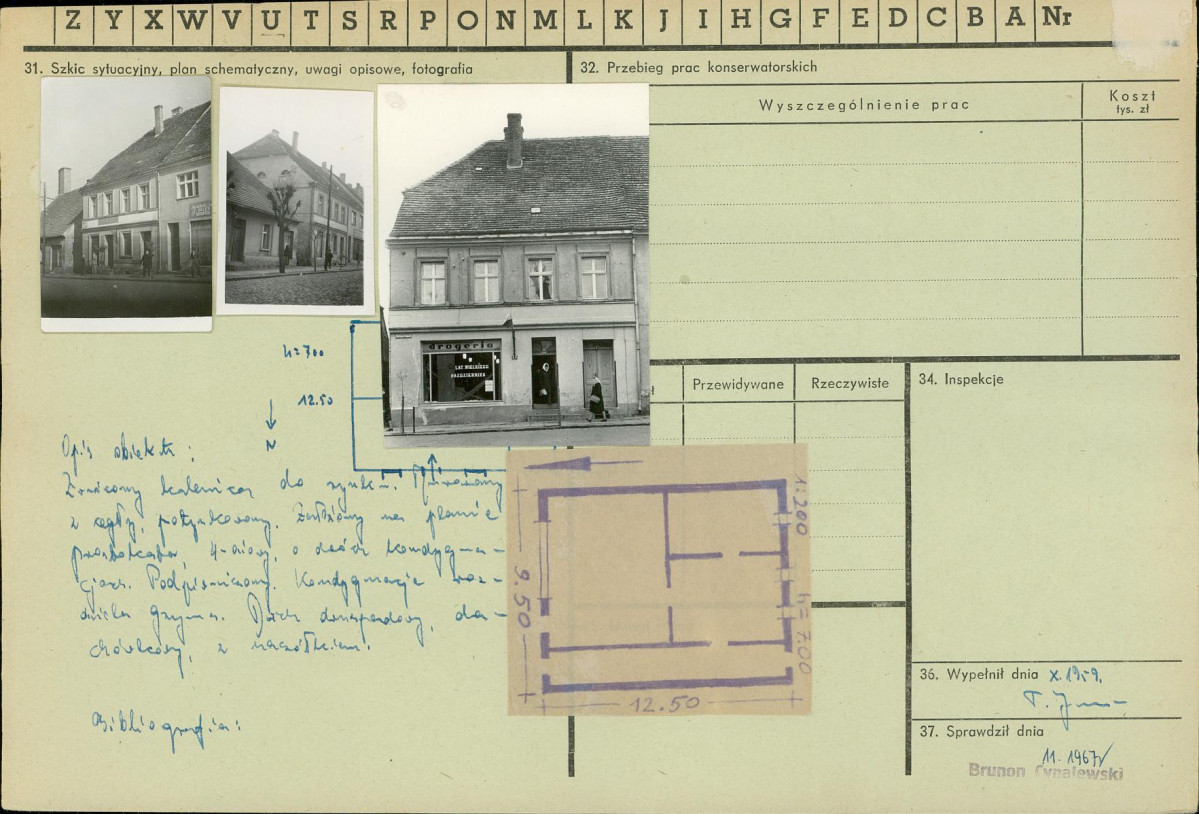 Z Y X W V U T S R P O N M L K J I H G F E D C B A Nr
31. Szkic sytuacyjny, plan schematyczny, uwagi opisowe, fotografia
32. Przebieg prac konserwatorskich
Wyszczególnienie prac
Koszt
tys. zł
drogeria
LAT WIELKIEGO
PAŹDZIERNIKA
h=700
12.50
N
Opis obiektu:
Zwrócony kalenicą do rynku. Murowany
z cegły, potynkowany. Założony na planie
prostokąta, 4-osiowy, o dwóch kondygna-
cjach. Podpiwniczony. Kondygnacje roz-
dziela gzyms. Dach dwuspadowy, da-
chówkowy, z naczółkiem.
Bibliografia:
Przewidywane
Rzeczywiste
34. Inspekcje
1:200
9.50
h=7.00
12.50
36. Wypełnił dnia X.1959.
37. Sprawdził dnia
11.1967
Brunon Cynalewski